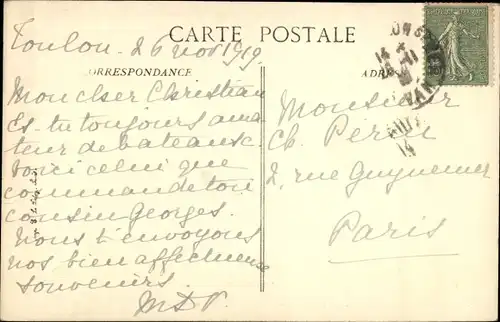 CARTE POSTALE
Toulon. 26 nov 1919.
CORRESPONDANCE
Mon cher Christian
Es-tu toujours ama
teur de bateaux.
Voici celui que
commande ton
cousin Georges.
Nous t'envoyons
nos bien affectueux
souvenirs.
ADRE
Monsieur
Ch.
2, rue Guynemer
Paris